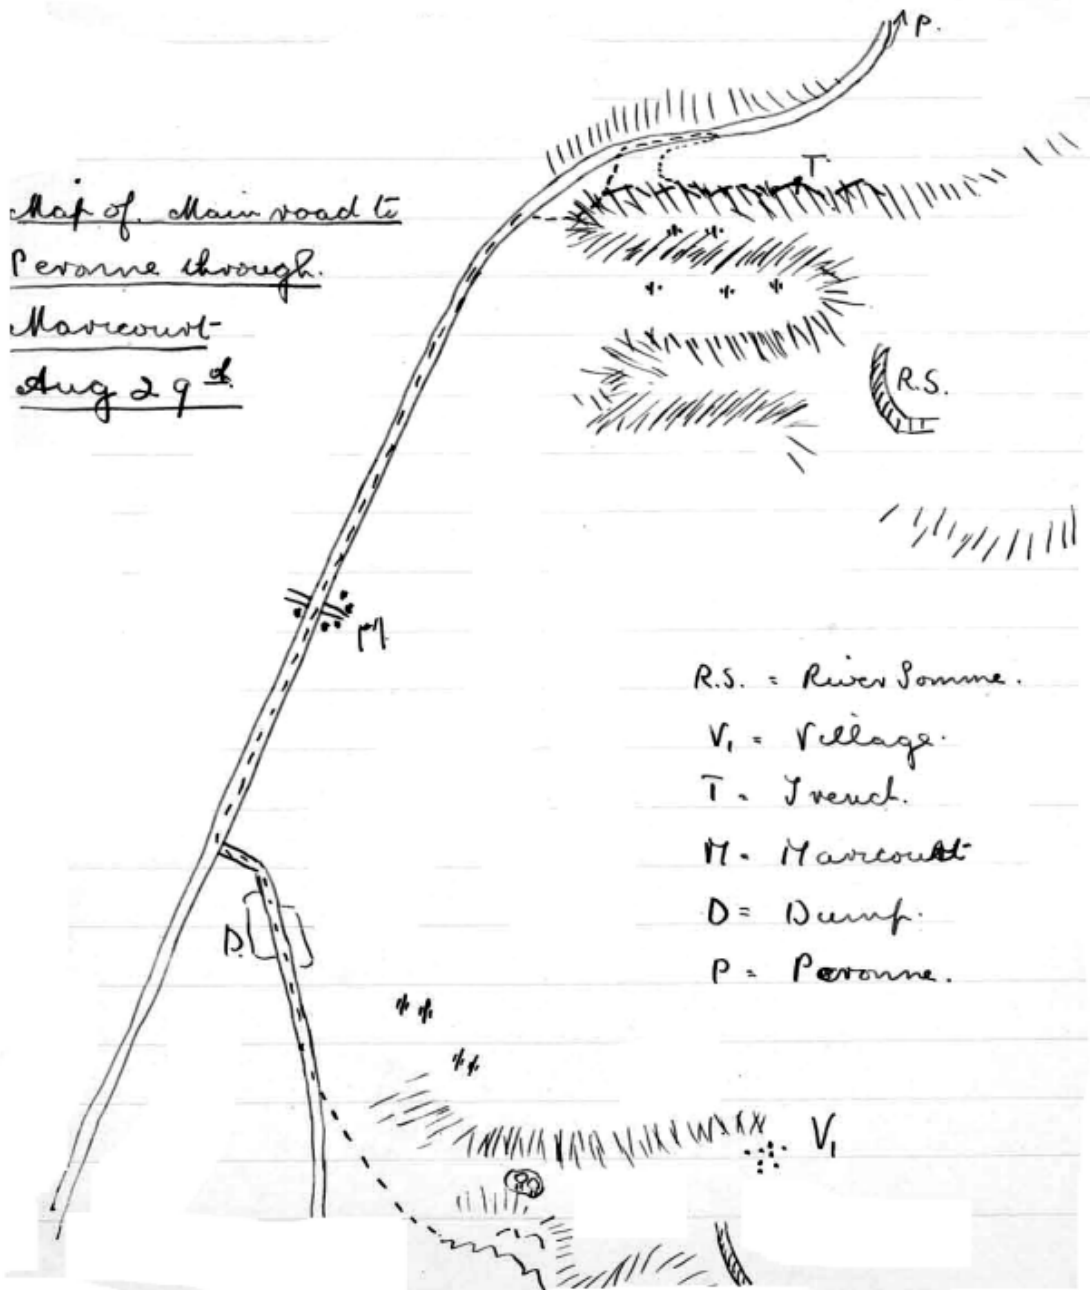 P.
T
Map of. Main road to
Peronne through.
Maricourt
Aug 29th
R.S.
M.
R.S. = River Somme.
V1 = Village.
T = Trench.
M = Maricourt
D = Dump.
P = Peronne.
D.
V1